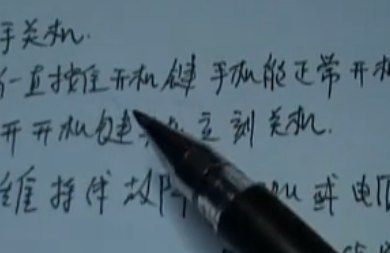 手关机.
一直按住开机键 手机能正常开机
开开机键 立刻关机.
维持件故障 或电